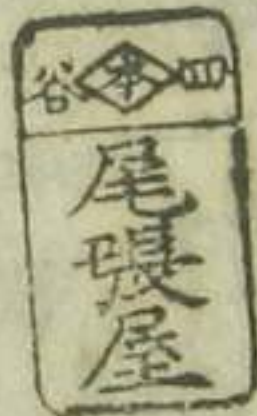 四本谷
尾張屋